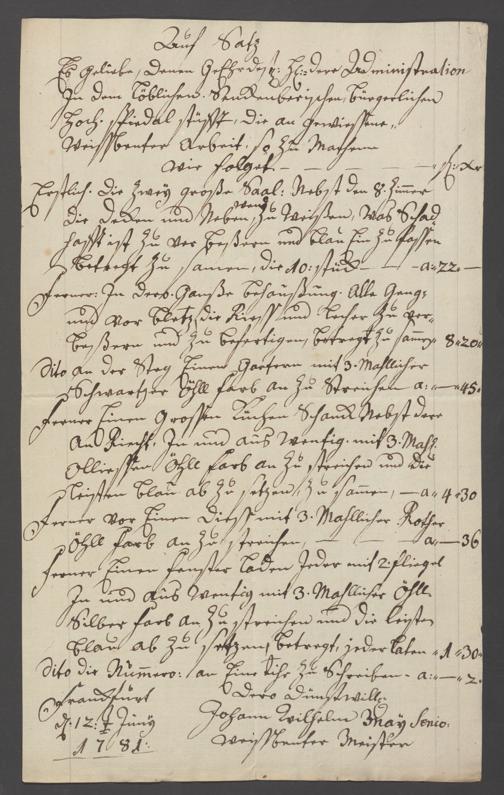 Auf Satz
Es geliebe, Denen Administration
In dem Löblichen Senckenbergischen bürgerlichen
Hoch spiedal stüfft, die an gewiessene
Weissbenter Arbeit, so zu Machen
wie folget. — — — — f: Xr
Erstlich: die Zweÿ große Saal: Nebst den 8. Zimmer
die decken und Neben wend zu Weissen, Was Schad
hafft ist zu ver beßern und blau Ein zu fassen
betregt zu samen, die 10: stück — — a: 22: —
Ferner: In der Ganße behaußung. Alle Geng
und vor bletz, die Riess und Lecher zu ver
beßern und zu befertigen, betregt zu 8: 20:
Dito an der Steg Einen mit 3. Mahllicher
Schwartzer Öhll farb an zu Streichen a: — 45:
Ferner Einen Grossen Kuchen Schanck Nebst der
An Riecht, In und aus wentig. mit 3. Mahl.
Öhll farb an zu streichen und die
Leisten blau ab zu setzen, zu samen, — a: 4: 30
Ferner vor Einen mit 3. Mahllicher Rother
Öhll farb an zu streichen, — — — a: — 36
Ferner Einen Fenster laden Jeder mit 2. fliegel
In und aus wentig mit 3. Mahllicher Öhll
Silber farb an zu streichen und die leisten
blau ab zu setzen, betregt, jeder laten 1: 30:
Dito die Nummero: an Eine zu Schreiben — a: — 2:
Franckfurt Dero dienstwill:
d: 12: Juny Johann Wilhelm Maÿ Senio:
1781: weissbenter Meister